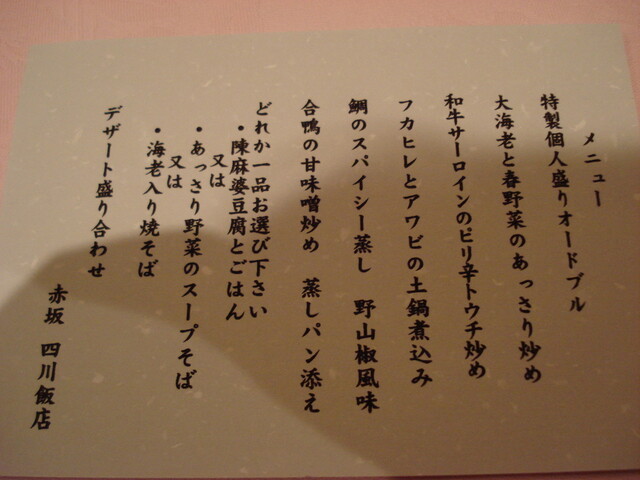 メニュー
特製個人盛りオードブル
大海老と春野菜のあっさり炒め
和牛サーロインのピリ辛トウチ炒め
フカヒレとアワビの土鍋煮込み
鯛のスパイシー蒸し 野山椒風味
合鴨の甘味噌炒め 蒸しパン添え
どれか一品お選び下さい
・陳麻婆豆腐とごはん
又は
・あっさり野菜のスープそば
又は
・海老入り焼そば
デザート盛り合わせ
赤坂 四川飯店